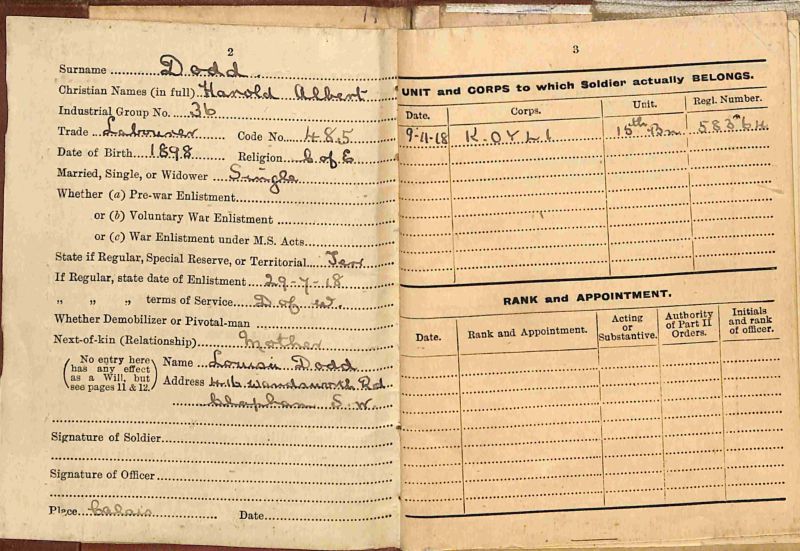 2
Surname Dodd.
Christian Names (in full) Harold Albert
Industrial Group No. 36
Trade Labourer Code No. 485
Date of Birth 1898 Religion C of E
Married, Single, or Widower Single
Whether (a) Pre-war Enlistment
or (b) Voluntary War Enlistment
or (c) War Enlistment under M.S. Acts
State if Regular, Special Reserve, or Territorial Terr
If Regular, state date of Enlistment 29-7-18
„ „ „ terms of Service D of W.
Whether Demobilizer or Pivotal-man
Next-of-kin (Relationship) Mother
(No entry here has any effect as a Will, but see pages 11 & 12.)
Name Louise Dodd
Address 416 Wandsworth Rd
Clapham S.W.
Signature of Soldier
Signature of Officer
Place Calais Date
3
UNIT and CORPS to which Soldier actually BELONGS.
Date. Corps. Unit. Regl. Number.
9-11-18 K.OYLI 15th Bn 58364
RANK and APPOINTMENT.
Date. Rank and Appointment. Acting or Substantive. Authority of Part II Orders. Initials and rank of officer.